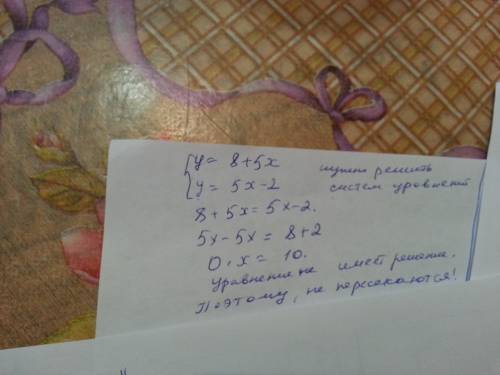 {y = 8+5x нужно решить
{y = 5x-2 систем уровнений
8+5x = 5x-2.
5x-5x = 8+2
0·x = 10.
Уравнение не имеет решение.
Поэтому, не пересекаются!